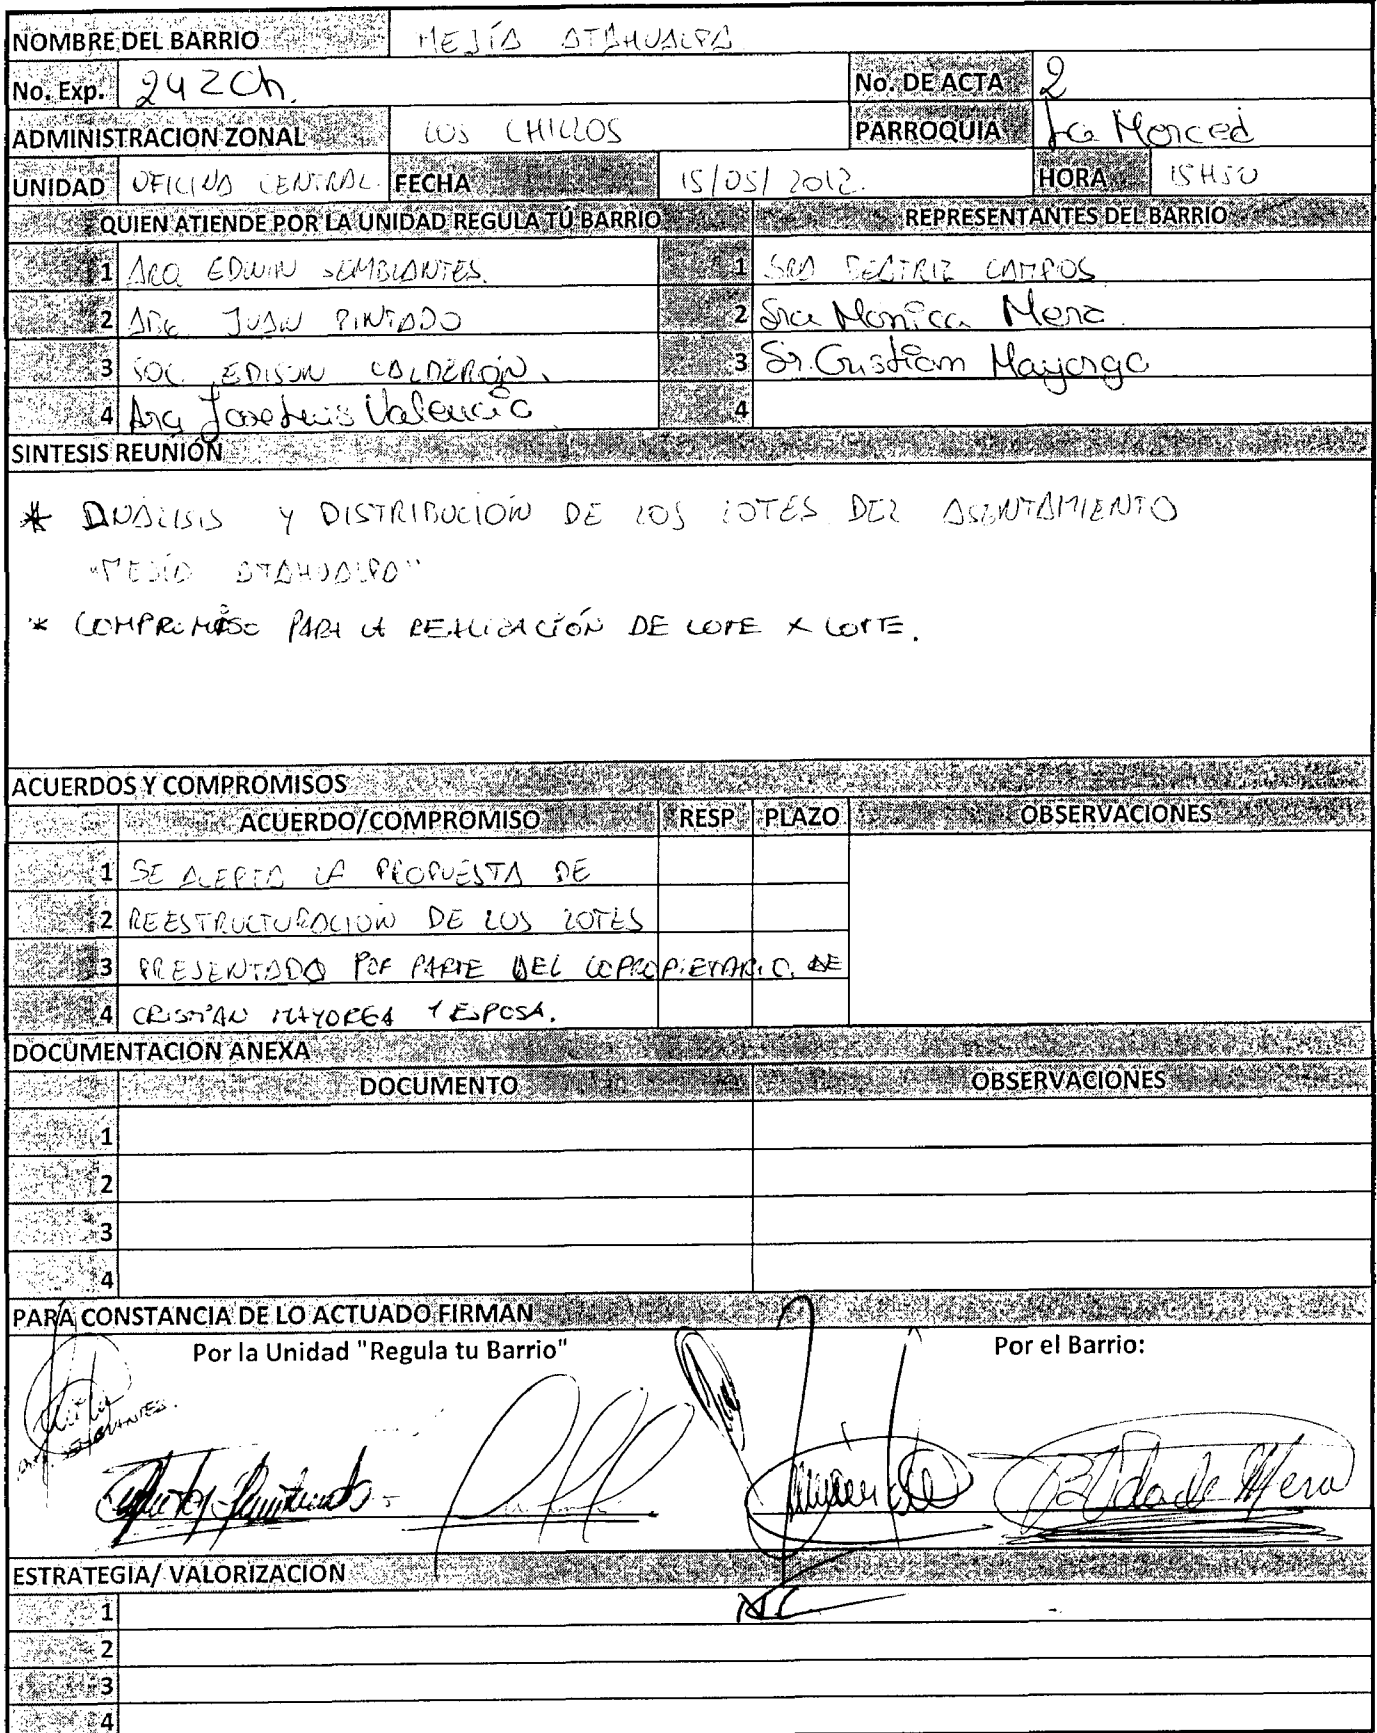 NOMBRE DEL BARRIO MEJÍA ATAHUALPA
No. Exp. 24 ZCh. No. DE ACTA 2
ADMINISTRACION ZONAL LOS CHILLOS PARROQUIA La Merced
UNIDAD OFICINA CENTRAL FECHA 15/05/2012. HORA 15H50
QUIEN ATIENDE POR LA UNIDAD REGULA TÚ BARRIO REPRESENTANTES DEL BARRIO
1 ARQ EDWIN SEMBLANTES. 1 SRA BEATRIZ CAMPOS
2 ARQ JUAN PINTADO 2 Sra Monica Mera
3 SOC. EDISON CALDERÓN. 3 Sr. Cristian Mayorga
4 Arq Jose Luis Valencia 4
SINTESIS REUNIÓN
* ANALISIS Y DISTRIBUCIÓN DE LOS LOTES DEL ASENTAMIENTO
"MEJÍA ATAHUALPA"
* COMPROMISO PARA LA REALIZACIÓN DE LOTE X LOTE.
ACUERDOS Y COMPROMISOS
ACUERDO/COMPROMISO RESP PLAZO OBSERVACIONES
1 SE ACEPTA LA PROPUESTA DE
2 REESTRUCTURACION DE LOS LOTES
3 PRESENTADO POR PARTE DEL COPROPIETARIO DE
4 CRISTIAN MAYORGA Y ESPOSA.
DOCUMENTACION ANEXA
DOCUMENTO OBSERVACIONES
1
2
3
4
PARA CONSTANCIA DE LO ACTUADO FIRMAN
Por la Unidad "Regula tu Barrio" Por el Barrio:
SEMBLANTES.
de Mera
ESTRATEGIA/ VALORIZACION
1
2
3
4